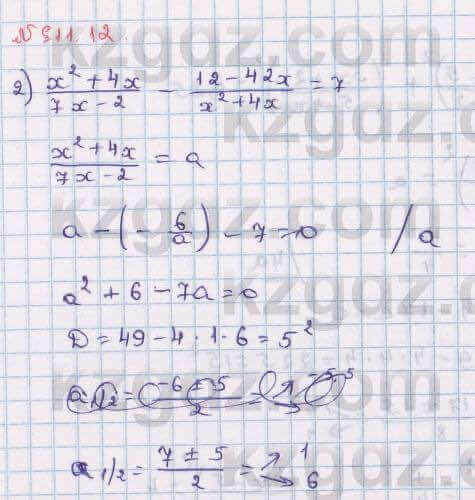 № 911.12.
2) (x² + 4x)/(7x - 2) - (12 - 42x)/(x² + 4x) = 7
(x² + 4x)/(7x - 2) = a
a - (- 6/a) - 7 = 0 /a
a² + 6 - 7a = 0
D = 49 - 4 · 1 · 6 = 5²
a 1/2 = (7 ± 5)/2 = ↗ 1 ↘ 6
kzgaz.com